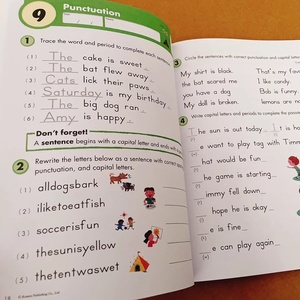 9 Punctuation
1 Trace the word and period to complete each sentence.
(1) The cake is sweet.
(2) The bat flew away.
(3) Cats lick their paws.
(4) Saturday is my birthday.
(5) The big dog ran.
(6) Amy is happy.
Don't forget!
A sentence begins with a capital letter and ends with a
2 Rewrite the letters below as a sentence with correct
punctuation, and capital letters.
(1) alldogsbark
(2) iliketoeatfish
(3) soccerisfun
(4) thesunisyellow
(5) thetentwaswet
18
3 Circle the sentences with correct punctuation and capital
My shirt is black. That's my
the bat scared me I like candy.
you have a dog Bob is funny.
My doll is broken. lemons are
4 Write capital letters and periods to complete the
The sun is out today. I is
e want to play tag with Timm
hat would be fun
e game is starting
immy fell down
hope he is okay
e is fine
e can play again